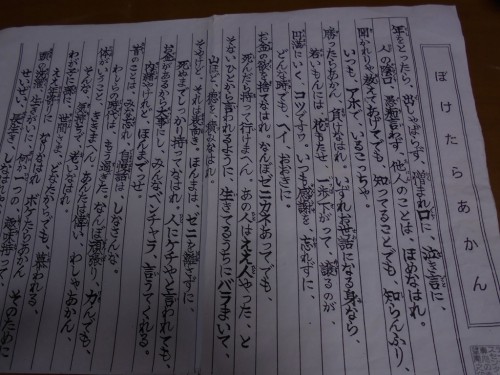 ぼけたらあかん
年をとったら、出しゃばらず、憎まれ口に、泣き言に、
人の蔭口、悪
言わず、他人のことは、ほめなはれ。
聞かれりゃ教えてあげてでも、知ってることでも、知らんふり、
いつも、アホで、いるこっちゃ。
勝ったらあかん、負けなはれ、いずれお世話になる身なら、
若いもんには花もたせ、一歩下がって、譲るのが、
円満にいく、コツですワ。いつも感謝を、忘れずに、
どんな時でも、ヘイ、おおきに。
お金の欲を、捨てなはれ。なんぼゼニカネあってでも、
死んだら持って行けまへん。あの人はええ人やった、と
そないひとから言われるように、生きてるうちにバラまいて、
山ほど徳を積みなはれ。
そやけど、それは表向き、ほんまは、ゼニを離さずに、
死ぬまでしっかり持ってなはれ。人にケチやと言われても、
お金があるから大事にし、みんなベンチャラ、言うてくれる。
内緒やけれど、ほんまでっせ。
昔のことは、みな忘れ、自慢話は、しなさんな。
わしらの時代は、もう過ぎた。なんぼ頑張り、力んでも、
体がいうこと、ききまへん。あんたは偉い、わしゃあかん、
そんな気持ちで、おりなはれ。
わが子に孫に、世間さま、どなたからでも、慕われる、
ええ年寄りに、なりなはれ。ボケたらあかん、そのために、
生きがいに、何か一つの、趣味持って、
せいぜい、長生き、しなはれ